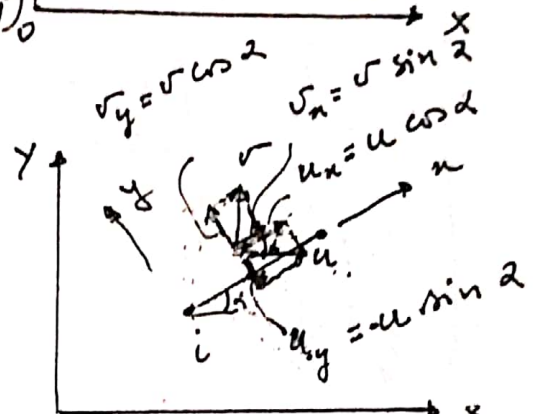 0
X
v_y = v cos α
v_x = v sin α
v
u_x = u cos α
Y
y
x
u
α
i
u_y = -u sin α
x